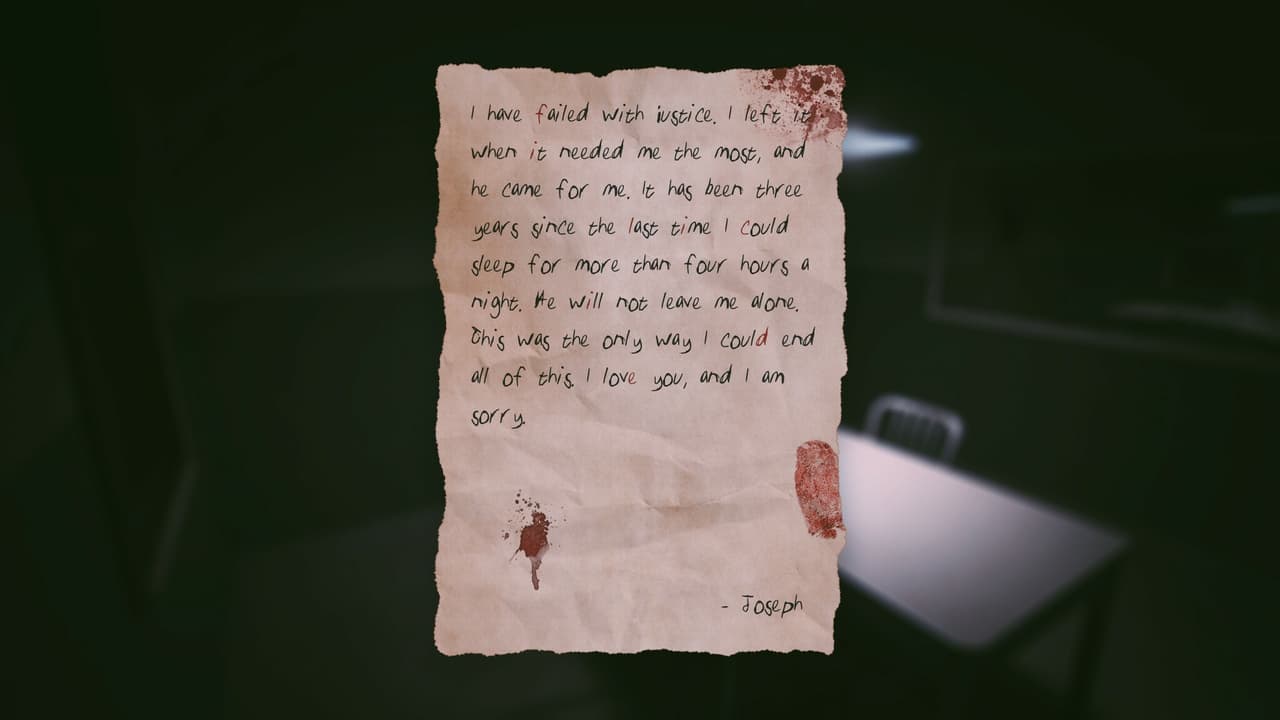 I have failed with iustice. I left it
when it needed me the most, and
he came for me. It has been three
years since the last time I could
sleep for more than four hours a
night. He will not leave me alone.
This was the only way I could end
all of this. I love you, and I am
sorry.
- Joseph